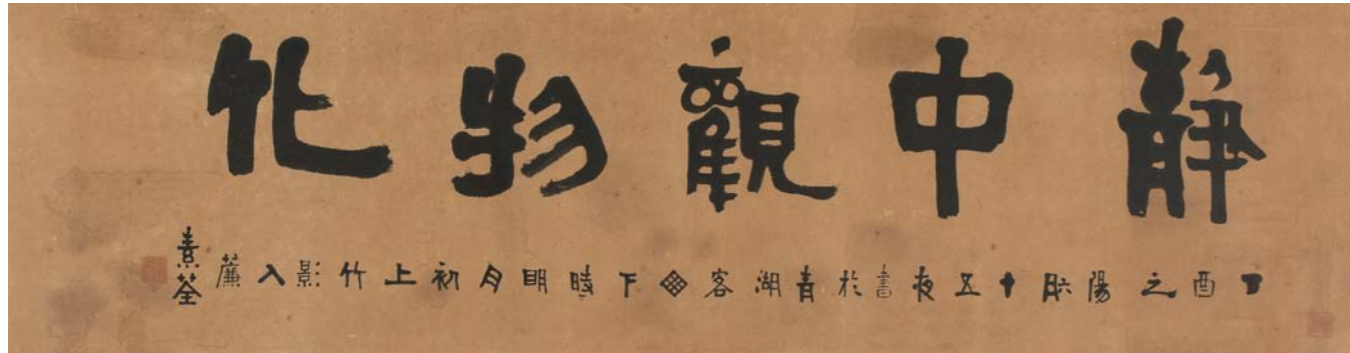 靜中觀物化
丁酉之陽十五夜書於青湖客囱下時眀月初上竹影入薕
素荃